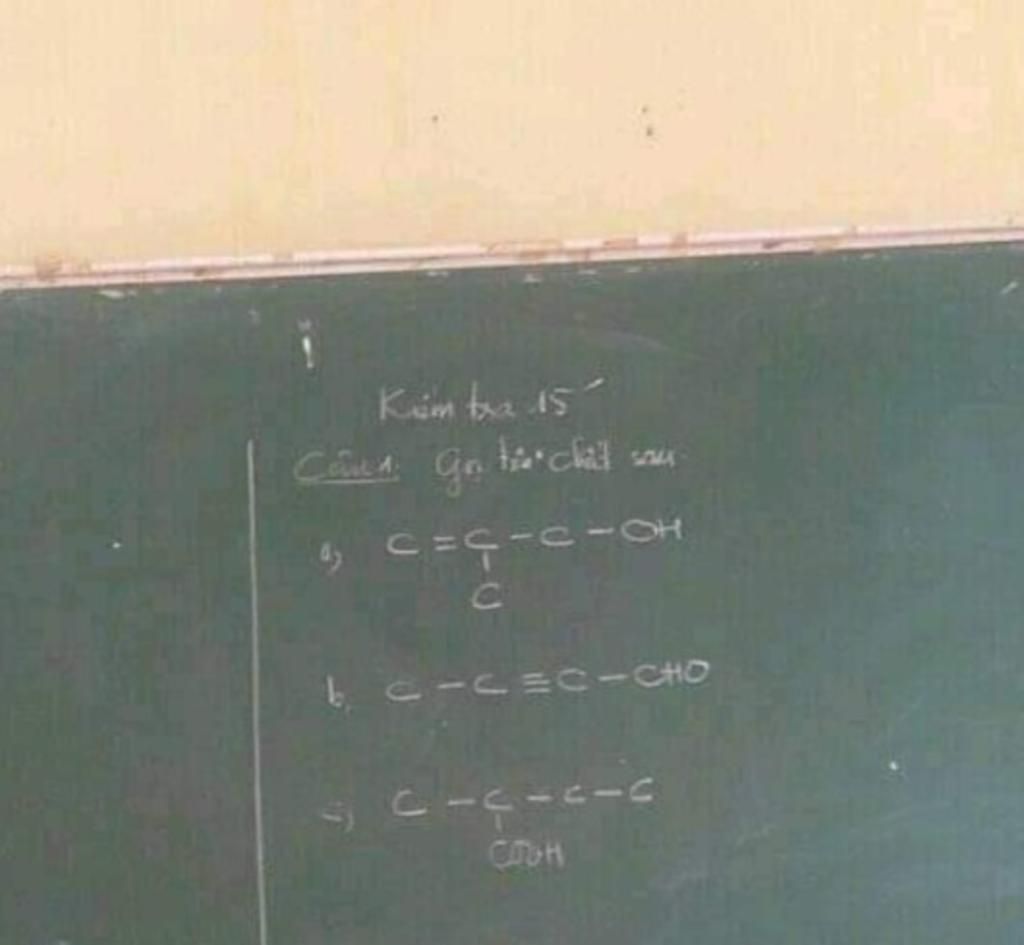 Kiểm tra 15'
Câu 1. Gọi tên chất sau
a) C = C - C - OH
C
b, C - C ≡ C - CHO
c) C - C - C - C
COOH